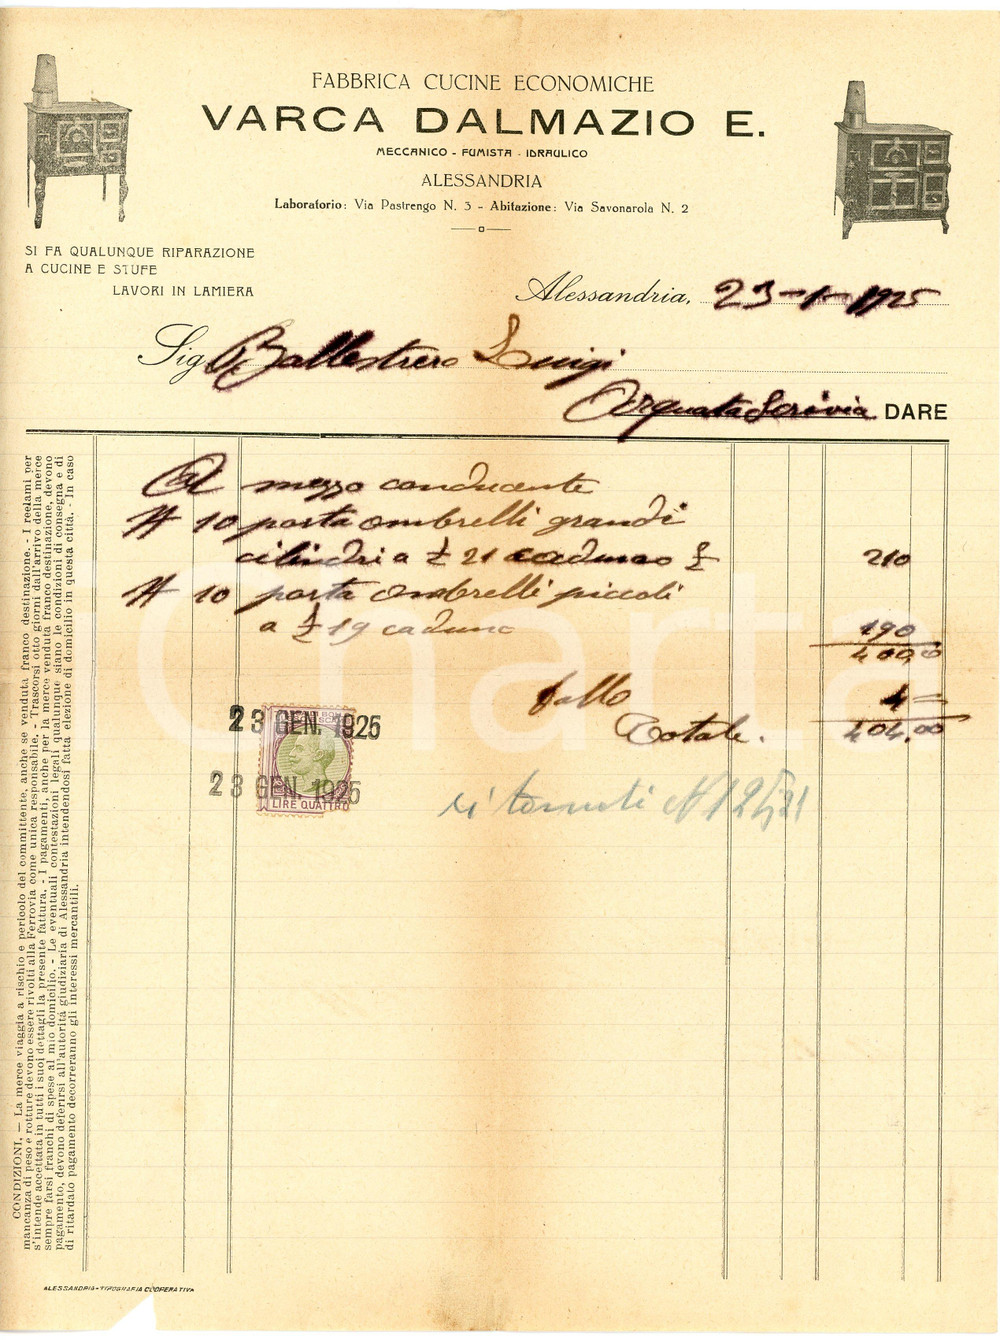 FABBRICA CUCINE ECONOMICHE
VARCA DALMAZIO E.
MECCANICO - FUMISTA - IDRAULICO
ALESSANDRIA
Laboratorio: Via Pastrengo N. 3 - Abitazione: Via Savonarola N. 2
SI FA QUALUNQUE RIPARAZIONE
A CUCINE E STUFE
LAVORI IN LAMIERA
Alessandria, 23-1-1925
Sig. Ballestrero Luigi
Arquata Scrivia DARE
A mezzo conducente
N 10 porta ombrelli grandi
cilindri a £ 21 caduno £ 210
N 10 porta ombrelli piccoli
a £ 19 caduno 190
400,00
bollo 4=
Totale. 404,00
23 GEN. 1925
23 GEN. 1925
LIRE QUATTRO
ritornati N 12
CONDIZIONI. — La merce viaggia a rischio e pericolo del committente, anche se venduta franco destinazione. - I reclami per
mancanza di peso e rotture devono essere rivolti alla Ferrovia come unica responsabile. - Trascorsi otto giorni dall'arrivo della merce
s'intende accettata in tutti i suoi dettagli la presente fattura. - I pagamenti, anche per la merce venduta franco destinazione, devono
sempre farsi franchi di spese al mio domicilio. - Le eventuali contestazioni legali qualunque siano le condizioni di consegna e di
pagamento, devono deferirsi all'autorità giudiziaria di Alessandria intendendosi fatta elezione di domicilio in questa città. - In caso
di ritardato pagamento decorreranno gli interessi mercantili.
ALESSANDRIA-TIPOGRAFIA COOPERATIVA
Charta